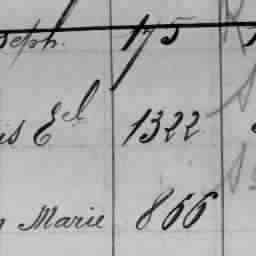 seph. 175
is Ed 1322
Marie 866